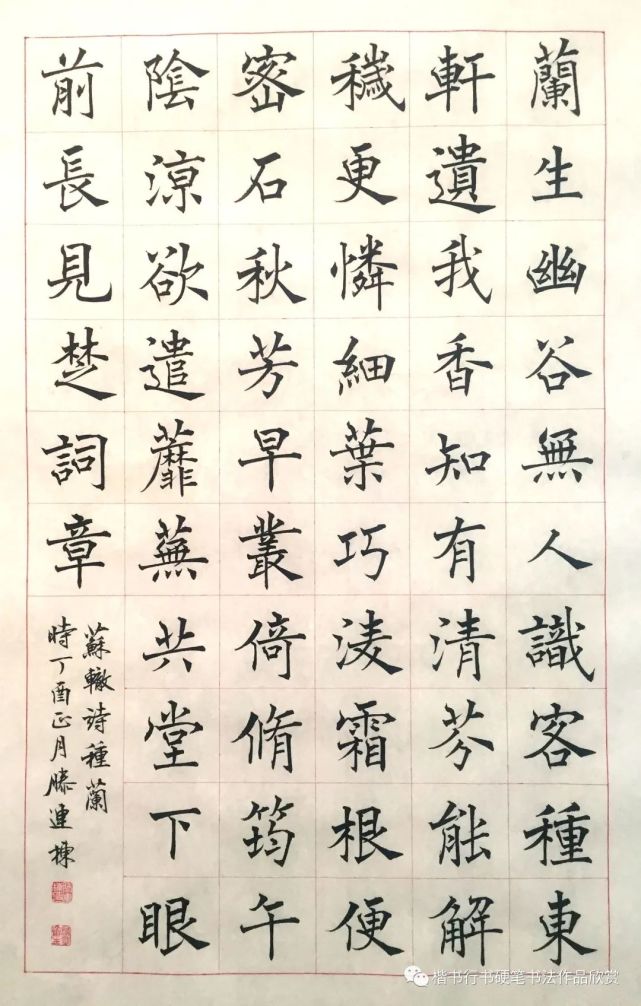 蘭生幽谷無人識客種東
軒遺我香知有清芬能解
穢更憐細葉巧淩霜根便
密石秋芳早叢倚脩筠午
陰涼欲遣蘼蕪共堂下眼
前長見楚詞章
蘇轍诗種蘭
時丁酉正月滕連棟
楷书行书硬笔书法作品欣赏